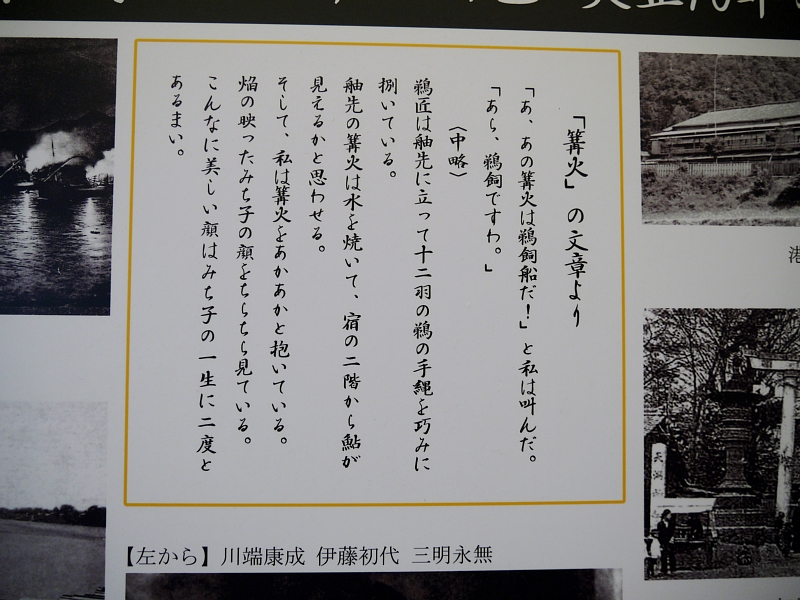 「篝火」の文章より
「あ、あの篝火は鵜飼船だ！」と私は叫んだ。
「あら、鵜飼ですわ。」
（中略）
鵜匠は舳先に立って十二羽の鵜の手縄を巧みに
捌いている。
舳先の篝火は水を焼いて、宿の二階から鮎が
見えるかと思わせる。
そして、私は篝火をあかあかと抱いている。
焔の映ったみち子の顔をちらちら見ている。
こんなに美しい顔はみち子の一生に二度と
あるまい。
【左から】川端康成 伊藤初代 三明永無
港